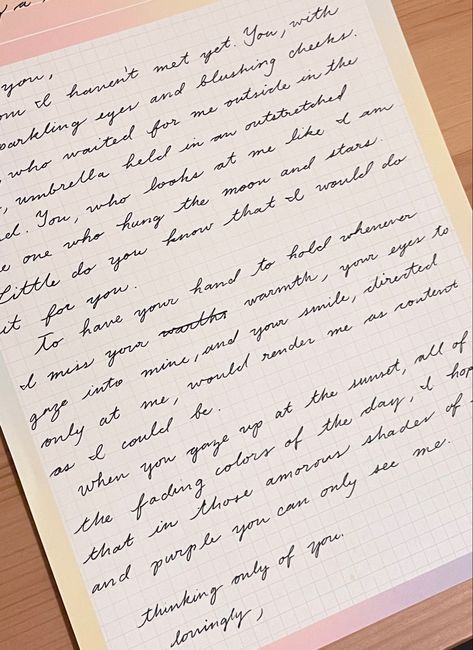 you,
I haven't met yet. You, with
sparkling eyes and blushing cheeks.
who waited for me outside in the
umbrella held in an outstretched
You, who looks at me like I am
one who hung the moon and stars.
Little do you know that I would do
it for you.
To have your hand to hold whenever
I miss your warmth, your eyes to
gaze into mine, and your smile, directed
only at me, would render me as content
as I could be.
When you gaze up at the sunset, all of
the fading colors of the day, I hop
that in those amorous shades of
and purple you can only see me.
thinking only of you.
lovingly,